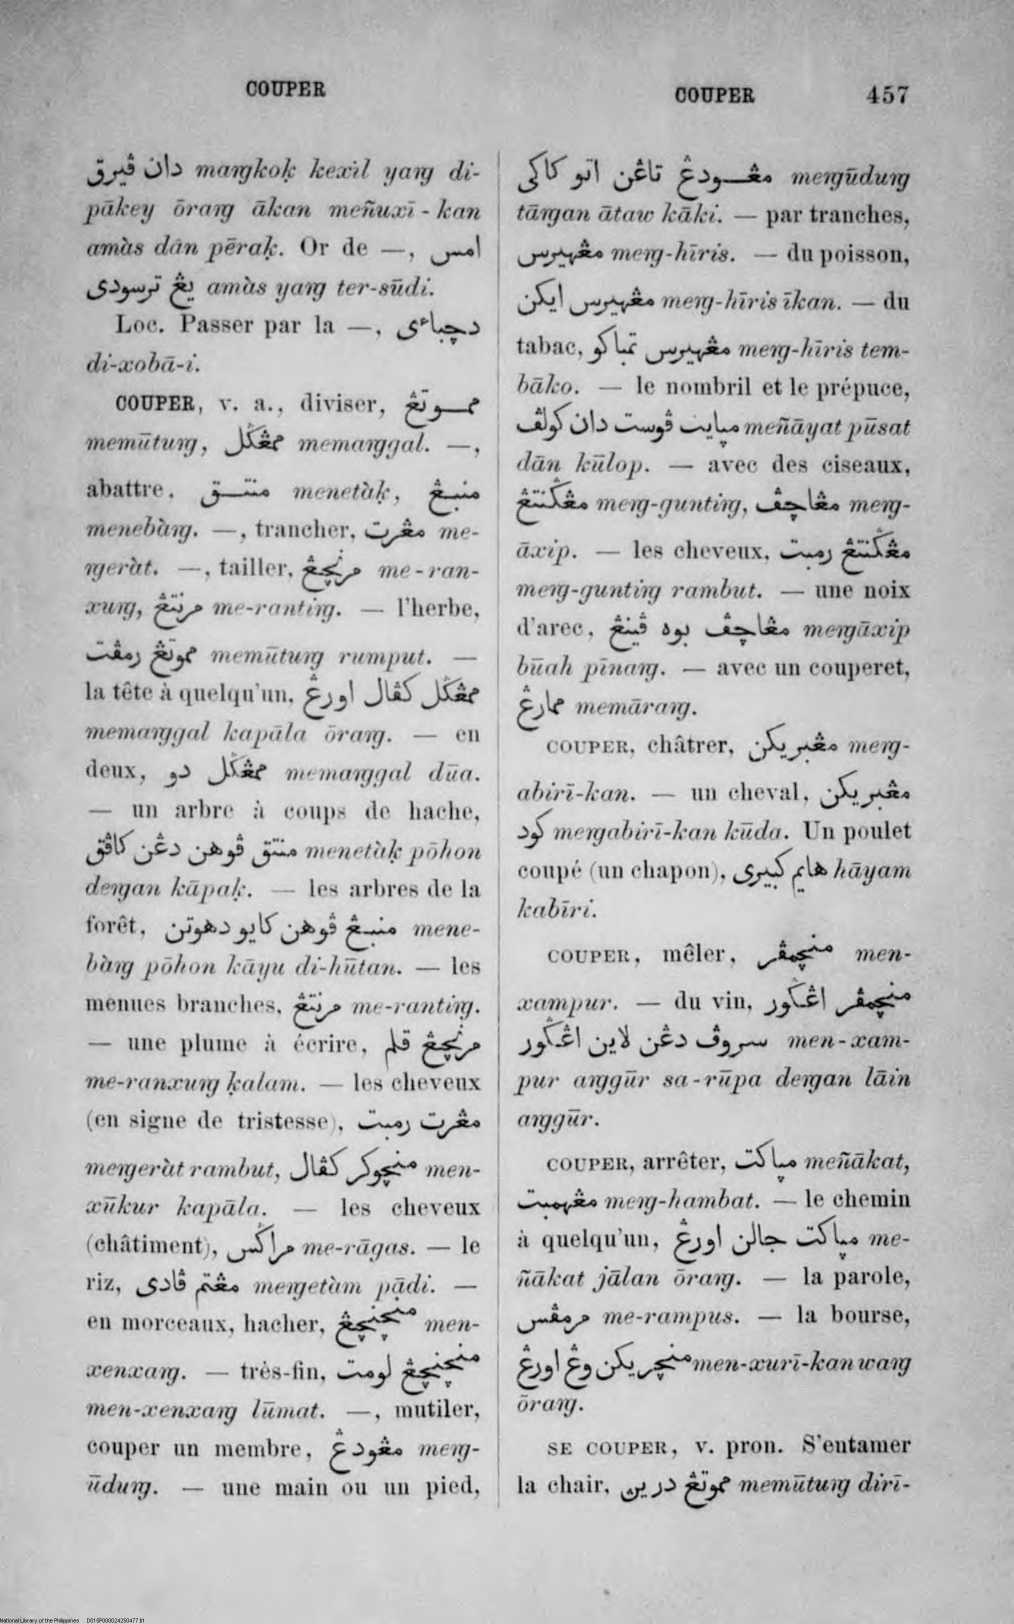 COUPER
COUPER 457
دان ڤيرق maŋkoḳ kexil yaŋ di-
pākey ōraŋ ākan meñuxī-kan
amàs dān pēraḳ. Or de —, امس
يڠ ترسودى amàs yaŋ ter-sūdi.
Loc. Passer par la —, دچباءى
di-xobā-i.
COUPER, v. a., diviser, مموتڠ
memūtuŋ, ممڠݢل memaŋgal. —,
abattre, منتق menetàḳ, منبڠ
menebàŋ. —, trancher, مڠرت me-
ŋeràt. —, tailler, مرنچڠ me-ran-
xuŋ, مرنتڠ me-rantiŋ. — l'herbe,
مموتڠ رمڤت memūtuŋ rumput. —
la tête à quelqu'un, ممڠݢل كڤال اورڠ
memaŋgal kapāla ōraŋ. — en
deux, ممڠݢل دو memaŋgal dūa.
— un arbre à coups de hache,
منتق ڤوهن دڠن كاڤق menetàḳ pōhon
deŋan kāpaḳ. — les arbres de la
forêt, منبڠ ڤوهن كايو دهوتن mene-
bàŋ pōhon kāyu di-hūtan. — les
menues branches, مرنتڠ me-rantiŋ.
— une plume à écrire, مرنچڠ قلم
me-ranxuŋ ḳalam. — les cheveux
(en signe de tristesse), مڠرت رمبت
meŋeràt rambut, منچوكر كڤال men-
xūkur kapāla. — les cheveux
(châtiment), مراݢس me-rāgas. — le
riz, مڠتم ڤادى meŋetàm pādi. —
en morceaux, hacher, منچنچڠ men-
xenxaŋ. — très-fin, منچنچڠ لومت
men-xenxaŋ lūmat. —, mutiler,
couper un membre, مڠودڠ meŋ-
ūduŋ. — une main ou un pied,
مڠودڠ تاڠن اتو كاكى meŋūduŋ
tāŋan ātaw kāki. — par tranches,
مڠهيرس meŋ-hīris. — du poisson,
مڠهيرس ايكن meŋ-hīris īkan. — du
tabac, مڠهيرس تمباكو meŋ-hīris tem-
bāko. — le nombril et le prépuce,
مڽايت ڤوست دان كولڤ meñāyat pūsat
dān kūlop. — avec des ciseaux,
مڠݢنتڠ meŋ-guntiŋ, مڠاچڤ meŋ-
āxip. — les cheveux, مڠݢنتڠ رمبت
meŋ-guntiŋ rambut. — une noix
d'arec, مڠاچڤ بوه ڤينڠ meŋāxip
būah pīnaŋ. — avec un couperet,
ممارڠ memāraŋ.
COUPER, châtrer, مڠبريكن meŋ-
abirī-kan. — un cheval, مڠبريكن
كود meŋabirī-kan kūda. Un poulet
coupé (un chapon), هايم كبيرى hāyam
kabīri.
COUPER, mêler, منچمڤر men-
xampur. — du vin, منچمڤر اڠݢور
سروڤ دڠن لاين اڠݢور men-xam-
pur aŋgūr sa-rūpa deŋan lāin
aŋgūr.
COUPER, arrêter, مڽاكت meñākat,
مڠهمبت meŋ-hambat. — le chemin
à quelqu'un, مڽاكت جالن اورڠ me-
ñākat jālan ōraŋ. — la parole,
مرمڤس me-rampus. — la bourse,
منچريكن وڠ اورڠ men-xurī-kan waŋ
ōraŋ.
SE COUPER, v. pron. S'entamer
la chair, مموتڠ درين memūtuŋ dirī-
National Library of the Philippines